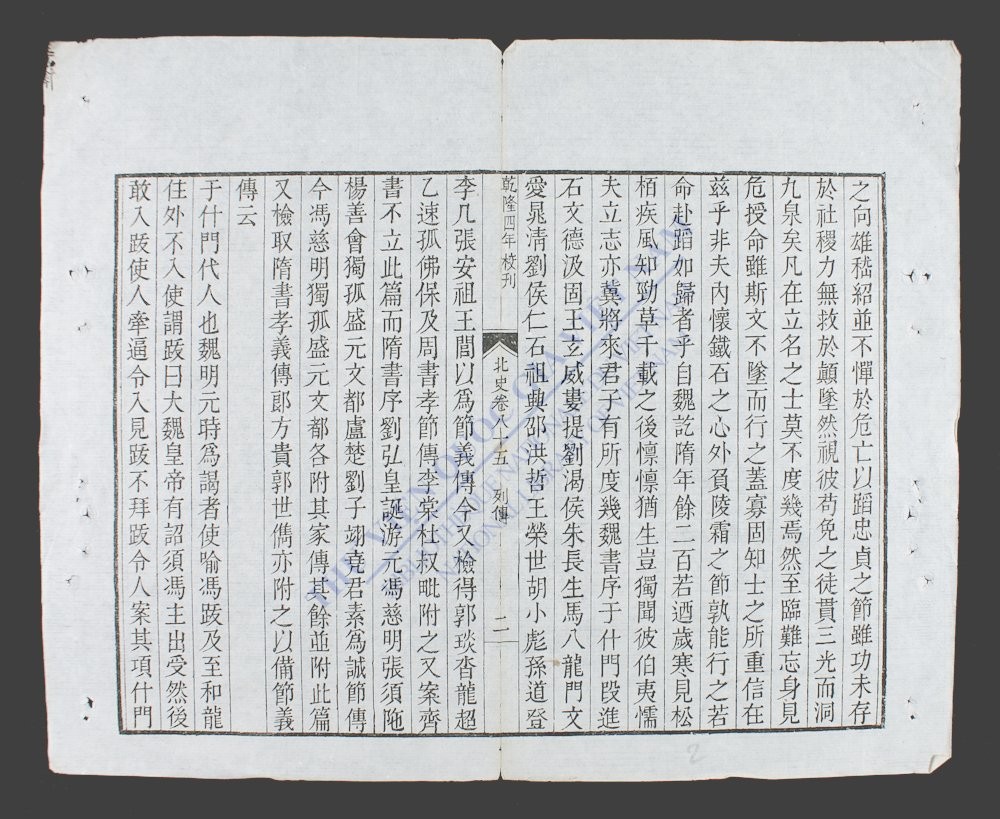 之向雄嵇紹並不憚於危亡以蹈忠貞之節雖功未存
於社稷力無救於顛墜然視彼苟免之徒貫三光而洞
九泉矣凡在立名之士莫不庶幾焉然至臨難忘身見
危授命雖斯文不墜而行之蓋寡固知士之所重信在
兹乎非夫內懷鐵石之心外負陵霜之節孰能行之若
命赴蹈如歸者乎自魏訖隋年餘二百若迺歲寒見松
栢疾風知勁草千載之後懔懔猶生豈獨聞彼伯夷懦
夫立志亦冀將來君子有所庶幾魏書序于什門段進
石文德汲固王玄威婁提劉渴侯朱長生馬八龍門文
愛晁清劉侯仁石祖興邵洪哲王榮世胡小彪孫道登
乾隆四年校刊
北史卷八十五 列傳
二
李几張安祖王閭以爲節義傳今又檢得郭琰沓龍超
乙速孤佛保及周書孝節傳李棠杜叔毗附之又案齊
書不立此篇而隋書序劉弘皇誕游元馮慈明張須陁
楊善會獨孤盛元文都盧楚劉子翊堯君素爲誠節傳
今馮慈明獨孤盛元文都各附其家傳其餘並附此篇
又檢取隋書孝義傳郎方貴郭世儁亦附之以備節義
傳云
于什門代人也魏明元時爲謁者使喻馮跋及至和龍
住外不入使謂跋曰大魏皇帝有詔須馮主出受然後
敢入跋使人牽逼令入見跋不拜跋令人案其項什門
THE VIEN OF GIA VIET NAM
BIBLIOTHEQUE NATIONALE DU VIETNAM
NATIONAL LIBRARY OF VIETNAM
2